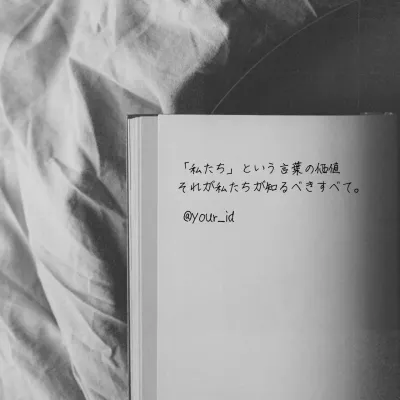 「私たち」という言葉の価値
それが私たちが知るべきすべて。
@your_id